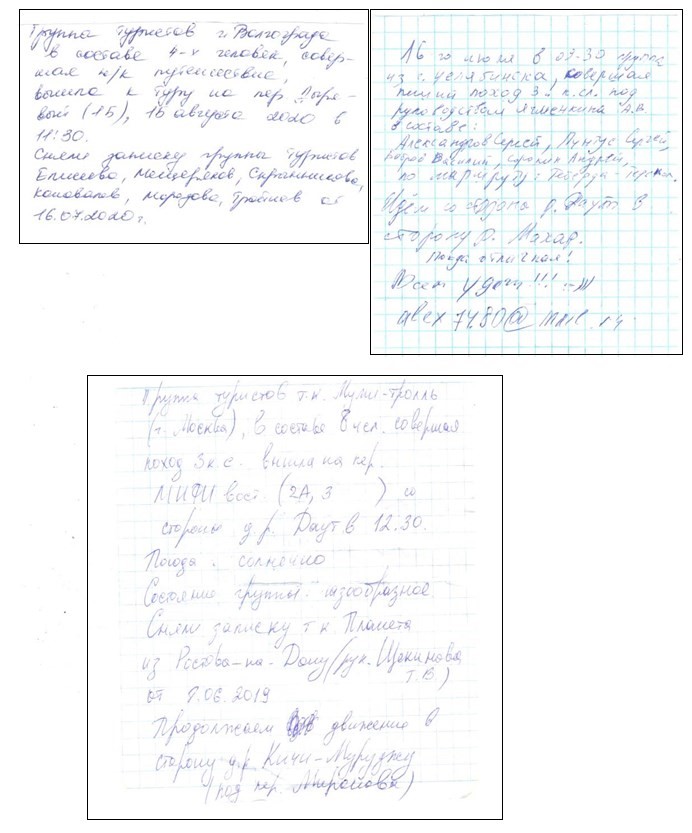 Группа туристов г. Волгограда
в составе 4-х человек, совер-
шая н/к путешествие,
вышла к туру на пер. Дыре-
вый (1Б), 15 августа 2020 в
11:30.
Сняли записку группы туристов
Елисеева, Мещеряков,
Коновалов, Морозова, от
16.07.2020г.
16 го июля в группа
из г. Челябинска, совершая
пеший поход 3 к.сл. под
руководством А.В.
в составе:
Александров Сергей, Сергей,
Василий, Андрей,
по маршруту: Теберда -
Идём со стороны р. Даут в
сторону р. Махар.
Погода отличная!
Всем удачи!!!
7480@mail.ru
Группа туристов т.к. Муми-тролль
(г. Москва), в составе 8 чел. совершая
поход 3 к с. вышла на пер.
МИФИ вост. (2А, 3 ) со
стороны д.р. Даут в 12.30.
Погода: солнечно
Состояние группы: газообразное
Сняли записку т к. Планета
из Ростова-на-Дону (рук. Щекинова
Т.В.)
от 8.06.2019
Продолжаем движение в
сторону д.р. Кичи-Муруджу
(под пер. Миронова)